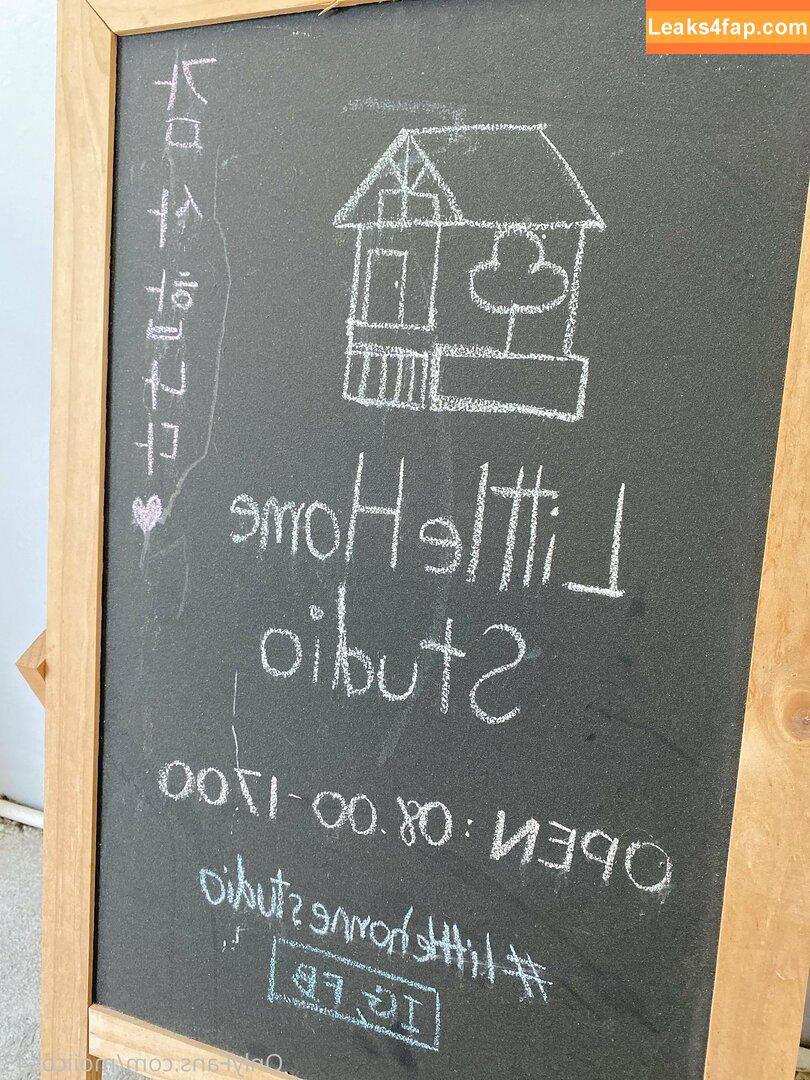 Leaks4fap.com
감사합니다
Little Home
Studio
OPEN : 08.00-1700
#littlehomestudio
IG, FB